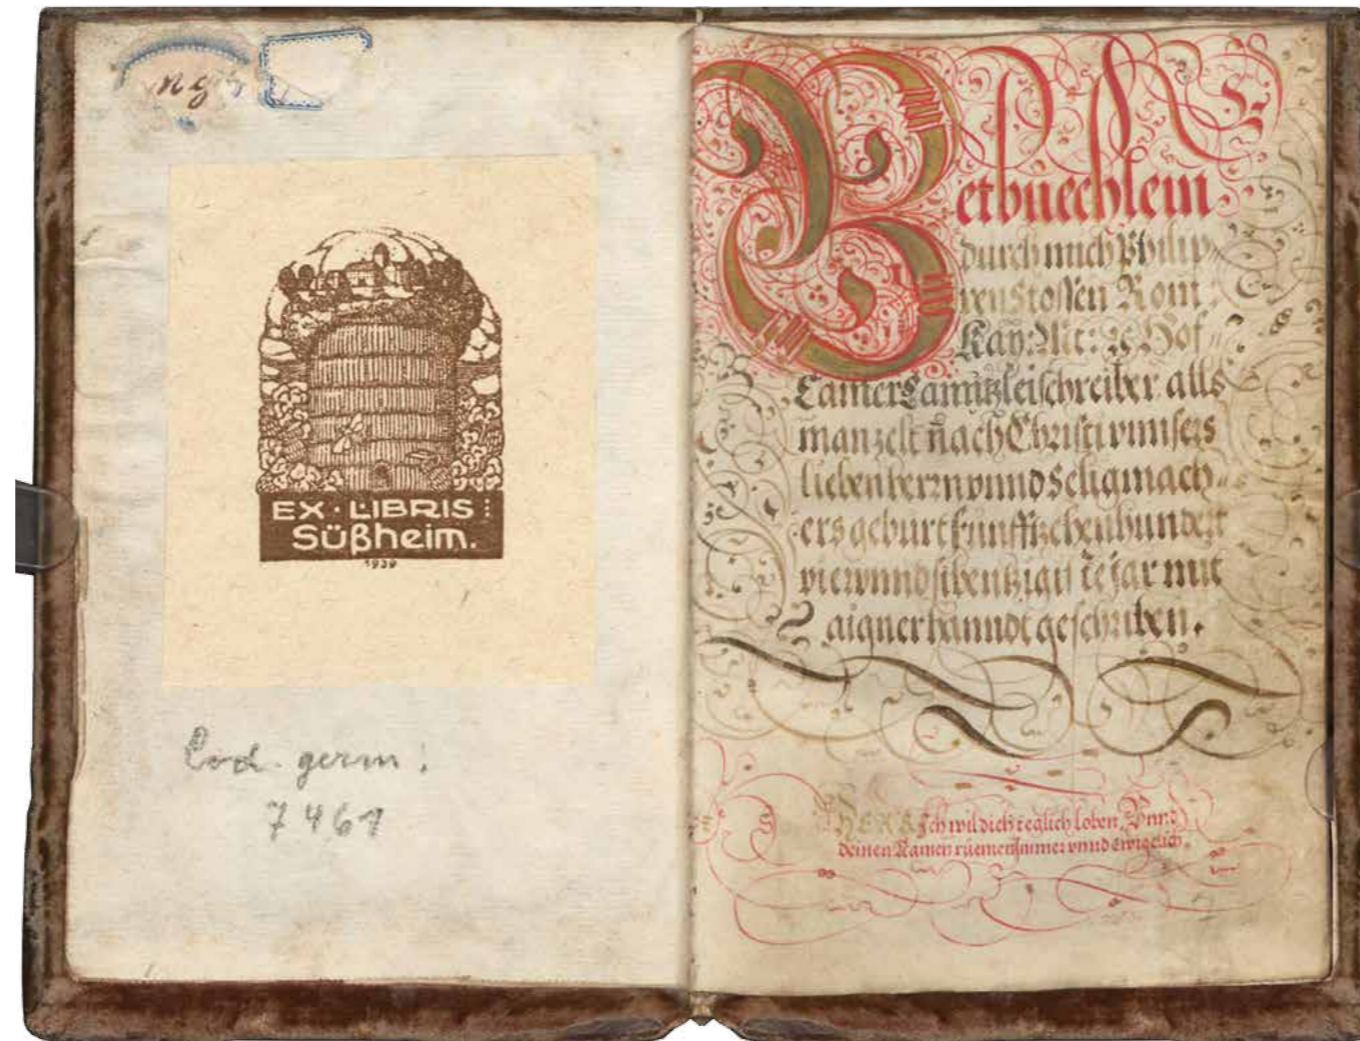 EX · LIBRIS :
Süßheim.
1939
Cod. germ.
7461
Betbuechlein
durch mich Philip=
pen Stossen Rom
Kay: Mt: ꝛc Hof=
Camer Canntzleischreiber alls
man zelt nach Christi vnnsers
lieben herrn vnnd Seligmach=
ers geburt Funffzehenhundert
vierunndsibentzigiste Jar mit
aigner hanndt geschriben.
HERR Ich wil dich teglich loben, Vnnd
deinen Namen ruemen Immer vnnd Ewigelich.